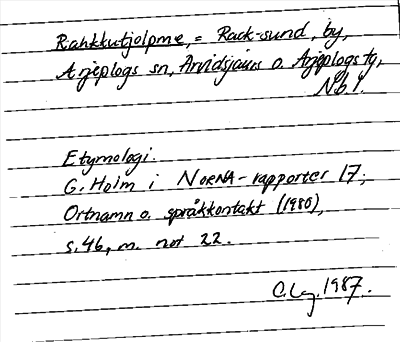 Rahkkutjolpme, = Rack-sund, by,
Arjeplogs sn, Arvidsjaurs o. Arjeplogs tg,
Nb. l.
Etymologi.
G. Holm i NORNA-rapporter 17;
Ortnamn o. språkkontakt (1980),
s. 46, m. not 22.
1987.